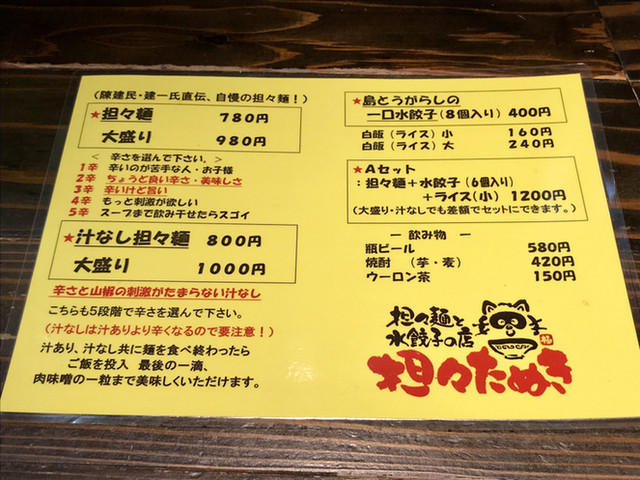 (陳建民・建一氏直伝、自慢の担々麺!)
★担々麺 780円
大盛り 980円
< 辛さを選んで下さい。>
1辛 辛いのが苦手な人・お子様
2辛 ちょうど良い辛さ・美味しさ
3辛 辛いけど旨い
4辛 もっと刺激が欲しい
5辛 スープまで飲み干せたらスゴイ
★汁なし担々麺 800円
大盛り 1000円
辛さと山椒の刺激がたまらない汁なし
こちらも5段階で辛さを選んで下さい。
(汁なしは汁ありより辛くなるので要注意!)
汁あり、汁なし共に麺を食べ終わったら
ご飯を投入 最後の一滴、
肉味噌の一粒まで美味しくいただけます。
★島とうがらしの
一口水餃子(8個入り) 400円
白飯(ライス)小 160円
白飯(ライス)大 240円
★Aセット
:担々麺+水餃子(6個入り)
+ライス(小) 1200円
(大盛り・汁なしでも差額でセットにできます。)
― 飲み物 ―
瓶ビール 580円
焼酎 (芋・麦) 420円
ウーロン茶 150円
担の麺と
水餃子の店
担々たぬき